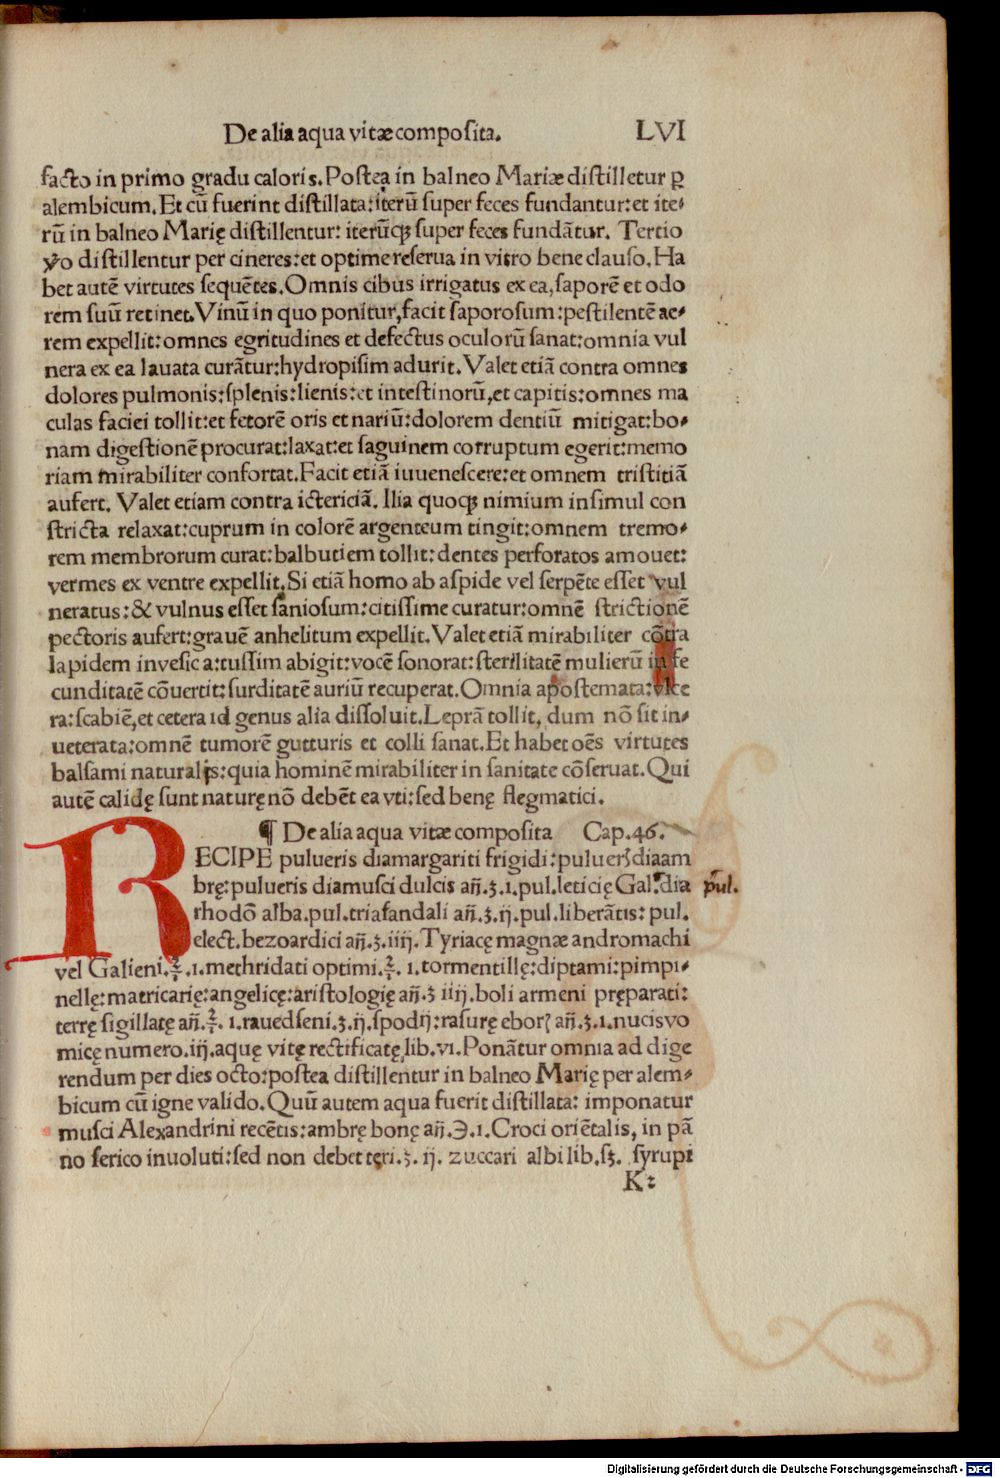 De alia aqua vitæ composita. LVI
facto in primo gradu caloris. Postea in balneo Mariæ distilletur ꝑ
alembicum. Et cū fuerint distillata: iterū super feces fundantur: et ite⸗
rū in balneo Marię distillentur: iterūqꝫ super feces fundātur. Tertio
v̊o distillentur per cineres: et optime reserua in vitro bene clauso. Ha
bet autē virtutes sequētes. Omnis cibus irrigatus ex ea, saporē et odo
rem suū retinet. Vinū in quo ponitur, facit saporosum: pestilentē ae⸗
rem expellit: omnes egritudines et defectus oculorū sanat: omnia vul
nera ex ea lauata curātur: hydropisim adurit. Valet etiā contra omnes
dolores pulmonis: splenis: lienis: et intestinorū, et capitis: omnes ma
culas faciei tollit: et fetorē oris et nariū: dolorem dentiū mitigat: bo⸗
nam digestionē procurat: laxat: et saguinem corruptum egerit: memo
riam mirabiliter confortat. Facit etiā iuuenescere: et omnem tristitiā
aufert. Valet etiam contra ictericiā. Ilia quoqꝫ nimium insimul con
stricta relaxat: cuprum in colorē argenteum tingit: omnem tremo⸗
rem membrorum curat: balbutiem tollit: dentes perforatos amouet:
vermes ex ventre expellit. Si etiā homo ab aspide vel serpēte esset vul
neratus: & vulnus esset saniosum: citissime curatur: omnē strictionē
pectoris aufert: grauē anhelitum expellit. Valet etiā mirabiliter cōtra
lapidem in vesica: tussim abigit: vocē sonorat: sterilitatē mulierū in fe
cunditatē cōuertit: surditatē auriū recuperat. Omnia apostemata: vlce
ra: scabiē, et cetera id genus alia dissoluit. Leprā tollit, dum nō sit in⸗
ueterata: omnē tumorē gutturis et colli sanat. Et habet oēs virtutes
balsami naturalis: quia hominē mirabiliter in sanitate cōseruat. Qui
autē calidę sunt naturę nō debēt ea vti: sed benę flegmatici.
¶ De alia aqua vitæ composita Cap. 46.
RECIPE pulueris diamargariti frigidi: pulueris diaam
brę: pulueris diamusci dulcis añ. ʒ. 1. pul. leticię Gal. dia pul.
rhodō alba. pul. triasandali añ. ʒ. ij. pul. liberātis: pul.
elect. bezoardici añ. ʒ. iiij. Tyriacę magnæ andromachi
vel Galieni. ℥. 1. methridati optimi. ℥. 1. tormentillę: diptami: pimpi⸗
nellę: matricarię: angelicę: aristologię añ. ʒ iiij. boli armeni pręparati:
terrę sigillatę añ. ℥. 1. rauedseni. ʒ. ij. spodij: rasurę eborꝭ añ. ʒ. 1. nucis vo
micę numero. iij. aquę vitę rectificatę, lib. vi. Ponātur omnia ad dige
rendum per dies octo: postea distillentur in balneo Marię per alem⸗
bicum cū igne valido. Quū autem aqua fuerit distillata: imponatur
musci Alexandrini recētis: ambrę bonę añ. ℈. 1. Croci oriētalis, in pā
no serico inuoluti: sed non debet teri. ʒ. ij. zuccari albi lib. sꝫ. syrupi
K:
Digitalisierung gefördert durch die Deutsche Forschungsgemeinschaft - DFG